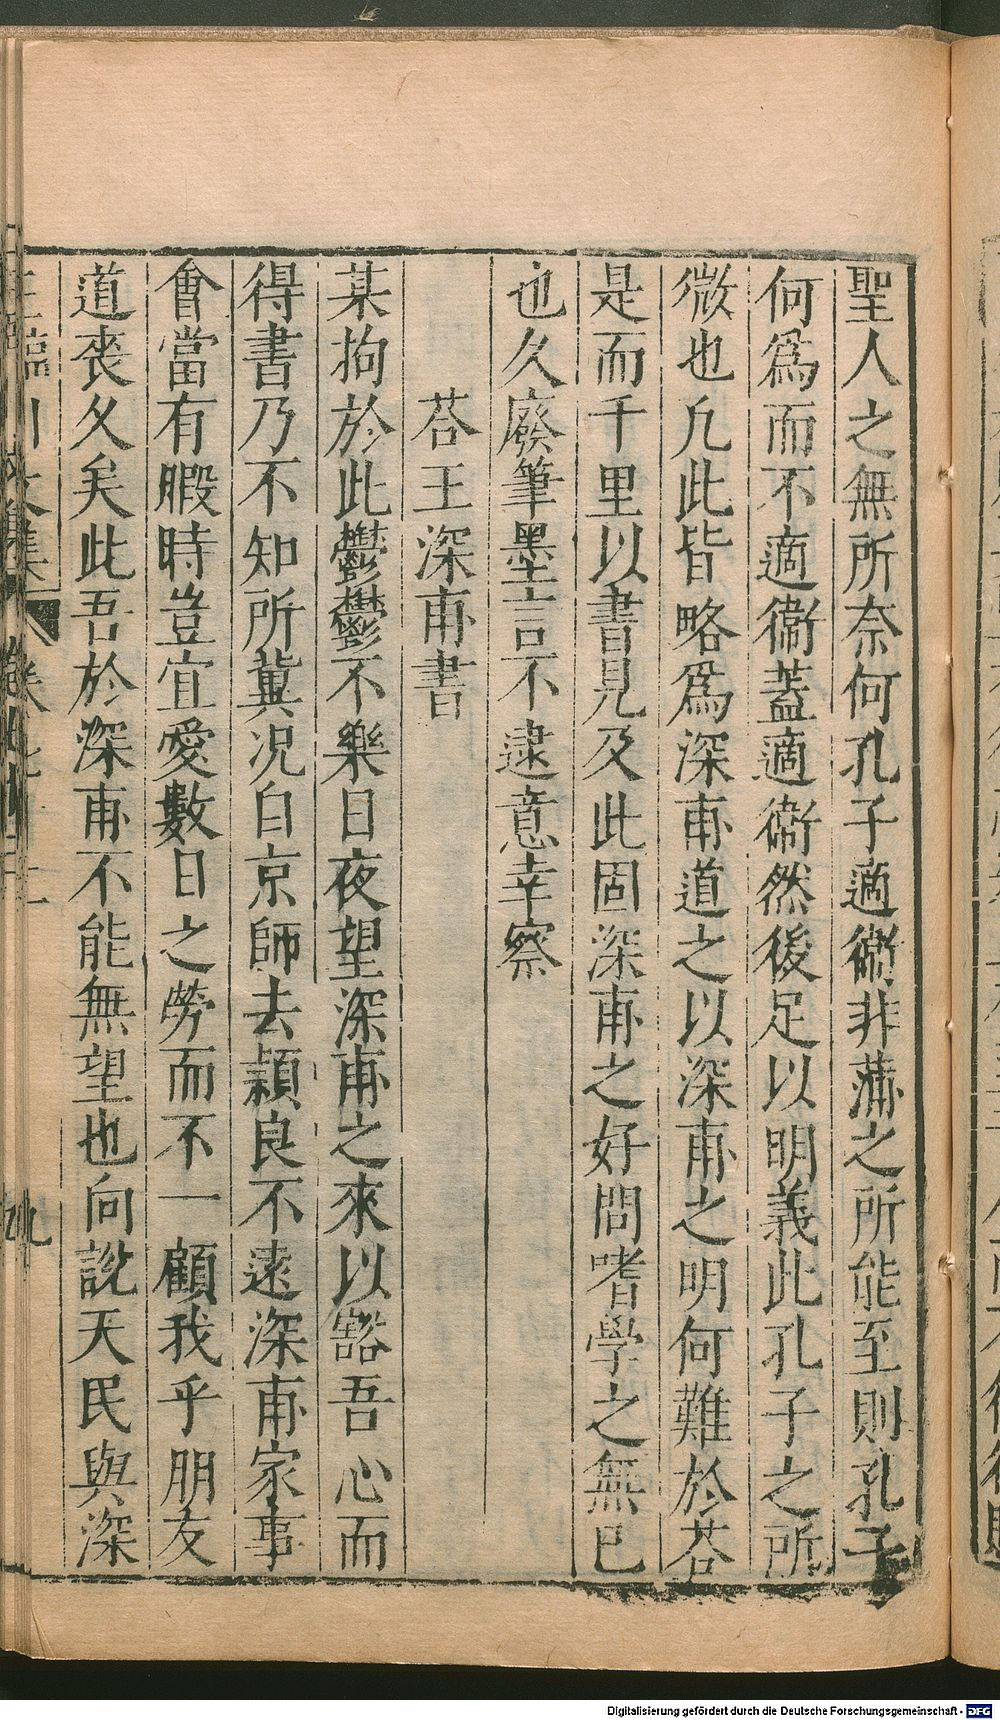 聖人之無所奈何孔子適衞非蒲之所能至則孔子
何爲而不適衞蓋適衞然後足以明義此孔子之所
微也凡此皆略爲深甫道之以深甫之明何難於荅
是而千里以書見及此固深甫之好問嗜學之無已
也久廢筆墨言不逮意幸察
荅王深甫書
某拘於此鬱鬱不樂日夜望深甫之來以豁吾心而
得書乃不知所冀况自京師去潁良不遠深甫家事
會當有暇時豈宜愛數日之勞而不一顧我乎朋友
道喪久矣此吾於深甫不能無望也向說天民與深
Digitalisierung gefördert durch die Deutsche Forschungsgemeinschaft - DFG